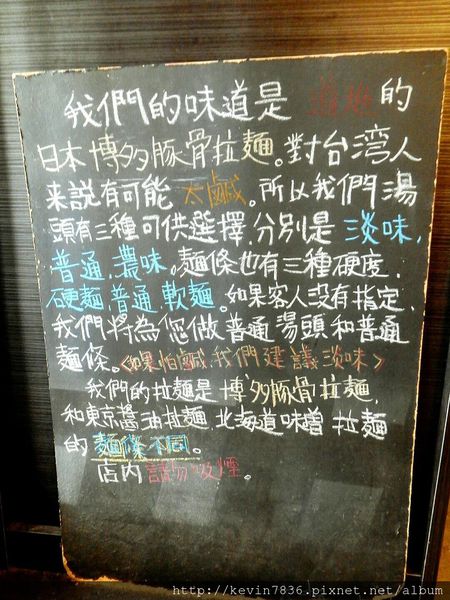 我們的味道是 道地 的
日本博多豚骨拉麵。對台湾人
来説有可能 太鹹。所以我們湯
頭有三種可供選擇,分別是 淡味,
普通,濃味。麵條也有三種硬度,
硬麵 普通 軟麵。如果客人没有指定,
我們将為您做普通湯頭和普通
麵條。<如果怕鹹,我們建議淡味>
我們的拉麵是博多豚骨拉麵,
和東京醬油拉麵 北海道味噌拉麵
的麵條不同。
店内請勿吸煙。
http://kevin7836.pixnet.net/album